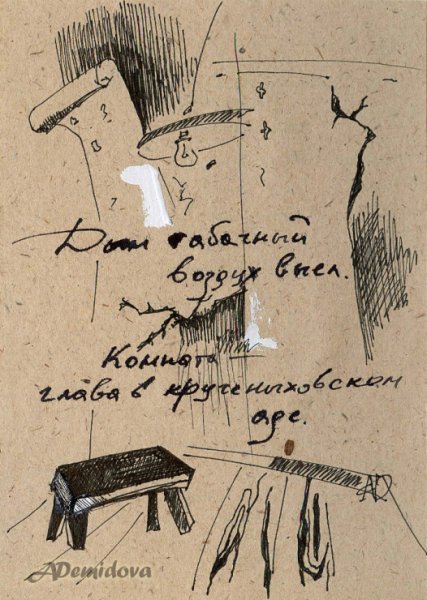 Дым табачный
воздух выел.
Комната
глава в крученыховском
аде.
AD
ADemidova